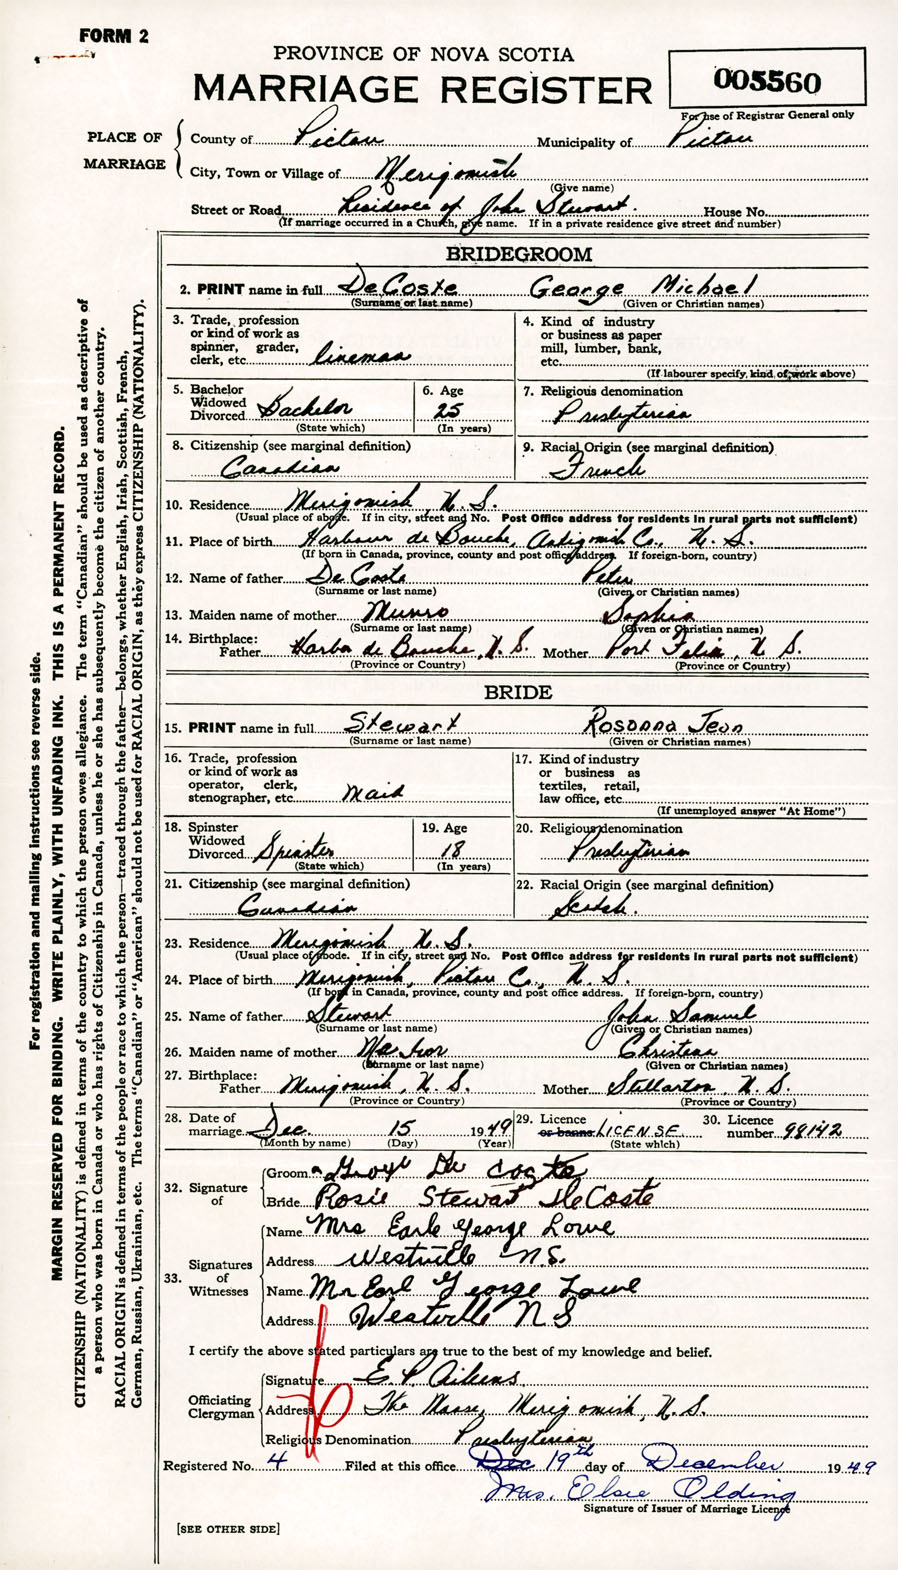 FORM 2
PROVINCE OF NOVA SCOTIA
MARRIAGE REGISTER
005560
For use of Registrar General only
PLACE OF MARRIAGE
County of Pictou Municipality of Pictou
City, Town or Village of Merigomish
(Give name)
Street or Road Residence of John Stewart. House No.
(If marriage occurred in a Church, give name. If in a private residence give street and number)
BRIDEGROOM
2. PRINT name in full DeCoste George Michael
(Surname or last name) (Given or Christian names)
3. Trade, profession or kind of work as spinner, grader, clerk, etc. lineman
4. Kind of industry or business as paper mill, lumber, bank, etc.
(If labourer specify, kind of work above)
5. Bachelor Widowed Divorced Bachelor
(State which)
6. Age 25
(In years)
7. Religious denomination
Presbyterian
8. Citizenship (see marginal definition)
Canadian
9. Racial Origin (see marginal definition)
French
10. Residence Merigomish, N. S.
(Usual place of abode. If in city, street and No. Post Office address for residents in rural parts not sufficient)
11. Place of birth Harbour de Bouche, Antigonish Co., N. S.
(If born in Canada, province, county and post office address. If foreign-born, country)
12. Name of father De Coste Peter
(Surname or last name) (Given or Christian names)
13. Maiden name of mother Munro Sophia
(Surname or last name) (Given or Christian names)
14. Birthplace:
Father Harbor de Bouche, N. S. Mother Port Felix, N. S.
(Province or Country) (Province or Country)
BRIDE
15. PRINT name in full Stewart Rosanna Jean
(Surname or last name) (Given or Christian names)
16. Trade, profession or kind of work as operator, clerk, stenographer, etc. Maid
17. Kind of industry or business as textiles, retail, law office, etc.
(If unemployed answer "At Home")
18. Spinster Widowed Divorced Spinster
(State which)
19. Age 18
(In years)
20. Religious denomination
Presbyterian
21. Citizenship (see marginal definition)
Canadian
22. Racial Origin (see marginal definition)
Scotch.
23. Residence Merigomish, N. S.
(Usual place of abode. If in city, street and No. Post Office address for residents in rural parts not sufficient)
24. Place of birth Merigomish, Pictou Co., N. S.
(If born in Canada, province, county and post office address. If foreign-born, country)
25. Name of father Stewart John Samuel
(Surname or last name) (Given or Christian names)
26. Maiden name of mother Christena
(Surname or last name) (Given or Christian names)
27. Birthplace:
Father Merigomish, N. S. Mother Stellarton, N. S.
(Province or Country) (Province or Country)
28. Date of marriage Dec. 15 1949
(Month by name) (Day) (Year)
29. Licence or banns LICENSE
(State which)
30. Licence number 98142
32. Signature of
Groom George De Coste
Bride Rosie Stewart DeCoste
33. Signatures of Witnesses
Name Mrs Earle George Lowe
Address Westville N.S.
Name Mr Earl George Lowe
Address Westville N S
I certify the above stated particulars are true to the best of my knowledge and belief.
Officiating Clergyman
Signature E. P. Aikens
Address The Manse, Merigomish, N. S.
Religious Denomination Presbyterian
Registered No. 4 Filed at this office Dec 19th day of December 1949
Mrs. Elsie Olding
Signature of Issuer of Marriage Licence
[SEE OTHER SIDE]
For registration and mailing instructions see reverse side.
MARGIN RESERVED FOR BINDING. WRITE PLAINLY, WITH UNFADING INK. THIS IS A PERMANENT RECORD.
CITIZENSHIP (NATIONALITY) is defined in terms of the country to which the person owes allegiance. The term "Canadian" should be used as descriptive of
a person who was born in Canada or who has rights of Citizenship in Canada, unless he or she has subsequently become the citizen of another country.
RACIAL ORIGIN is defined in terms of the people or race to which the person—traced through the father—belongs, whether English, Irish, Scottish, French,
German, Russian, Ukrainian, etc. The terms "Canadian" or "American" should not be used for RACIAL ORIGIN, as they express CITIZENSHIP (NATIONALITY).